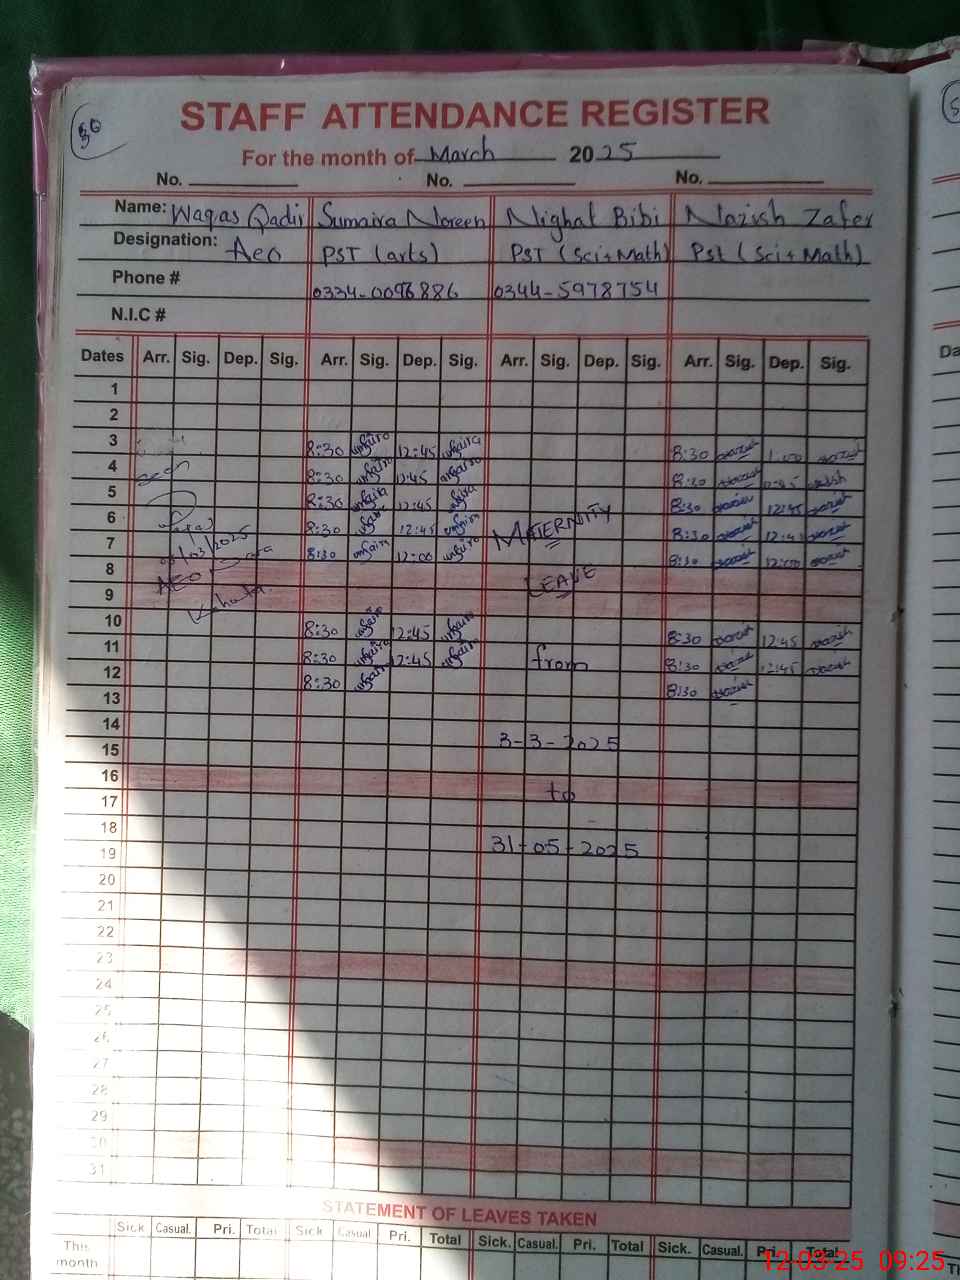 30
STAFF ATTENDANCE REGISTER
For the month of March 2025
No. No. No.
Name: Waqas Qadir Sumaira Noreen Nighat Bibi Nazish Zafer
Designation: Aeo PST (arts) PST (Sci+Math) Pst (Sci+Math)
Phone # 0334-0096886 0344-5978754
N.I.C #
Dates Arr. Sig. Dep. Sig. Arr. Sig. Dep. Sig. Arr. Sig. Dep. Sig. Arr. Sig. Dep. Sig.
1
2
3 8:30 12:45 8:30 1:00
4 8:30 12:45 8:30 12:45
5 8:30 12:45 8:30 12:45
6 8:30 12:45 MATERNITY 8:30 12:45
7 /03/2025 8:30 12:00 8:30 12:00
8 AEO
9 Kahuta LEAVE
10 8:30 12:45 8:30 12:45
11 8:30 12:45 from 8:30 12:45
12 8:30 8:30
13
14
15 3-3-2025
16
17 to
18
19 31-05-2025
20
21
22
23
24
25
26
27
28
29
30
31
STATEMENT OF LEAVES TAKEN
Sick Casual. Pri. Total Sick Casual Pri. Total Sick. Casual. Pri. Total Sick. Casual. Pri. Total
This month
12-03-25 09:25